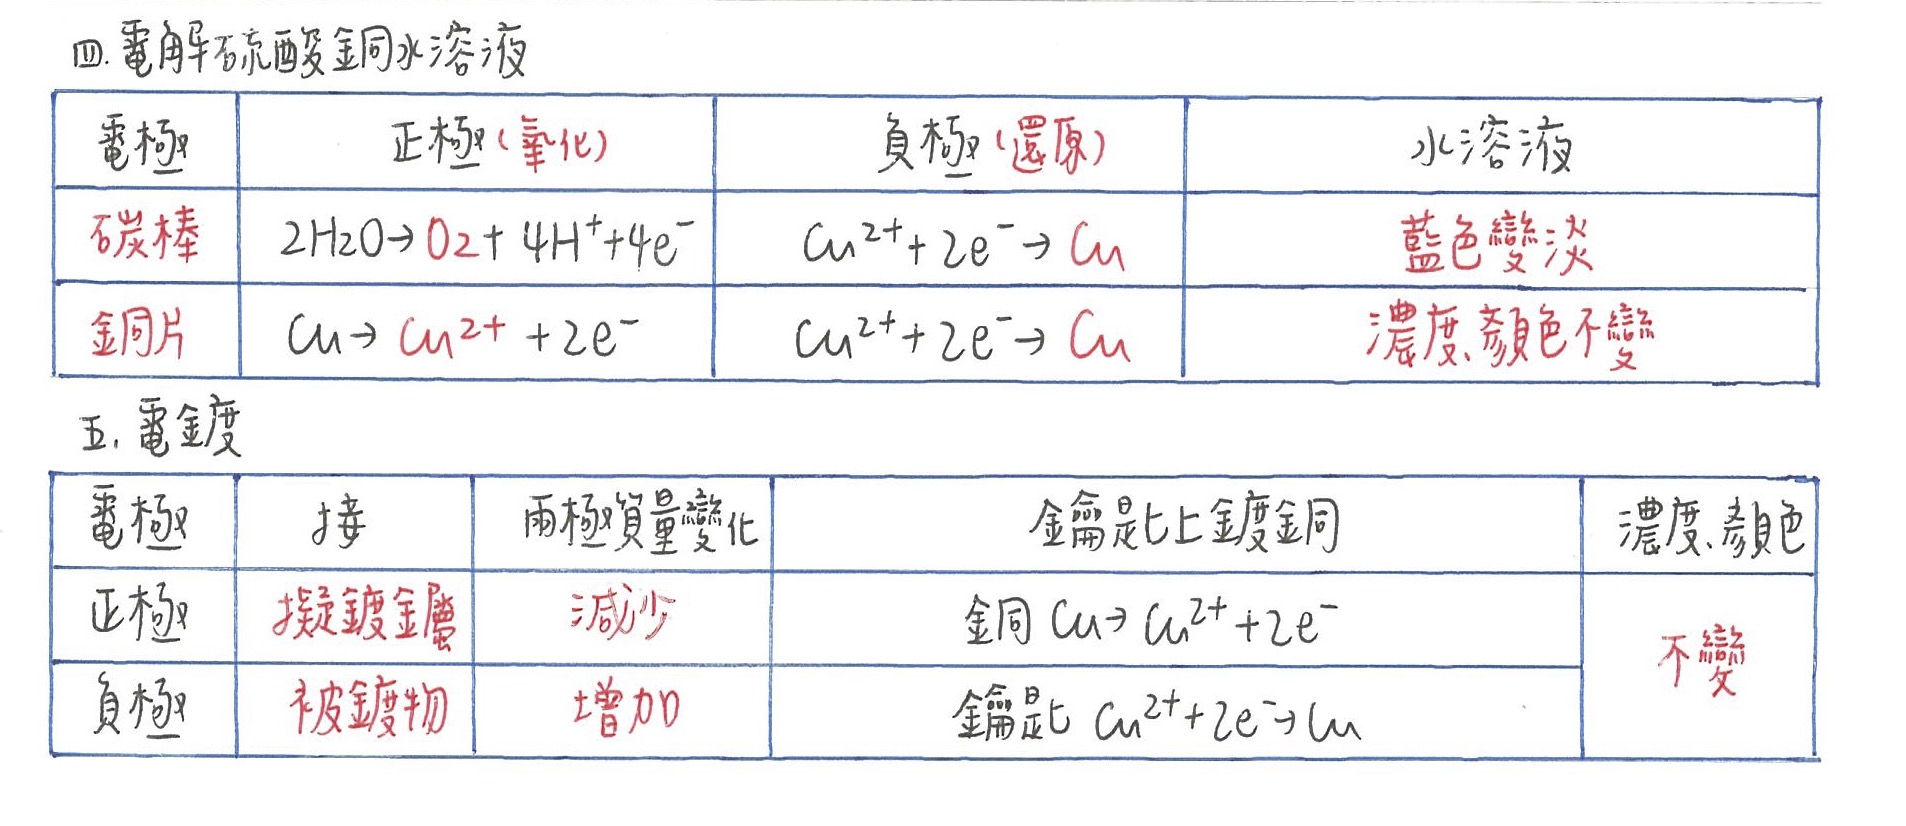 四.電解硫酸銅水溶液
電極 正極(氧化) 負極(還原) 水溶液
碳棒 2H2O→O2+4H⁺+4e⁻ Cu²⁺+2e⁻→Cu 藍色變淡
銅片 Cu→Cu²⁺+2e⁻ Cu²⁺+2e⁻→Cu 濃度、顏色不變
五.電鍍
電極 接 兩極質量變化 鑰匙上鍍銅 濃度、顏色
正極 擬鍍金屬 減少 銅 Cu→Cu²⁺+2e⁻ 不變
負極 被鍍物 增加 鑰匙 Cu²⁺+2e⁻→Cu